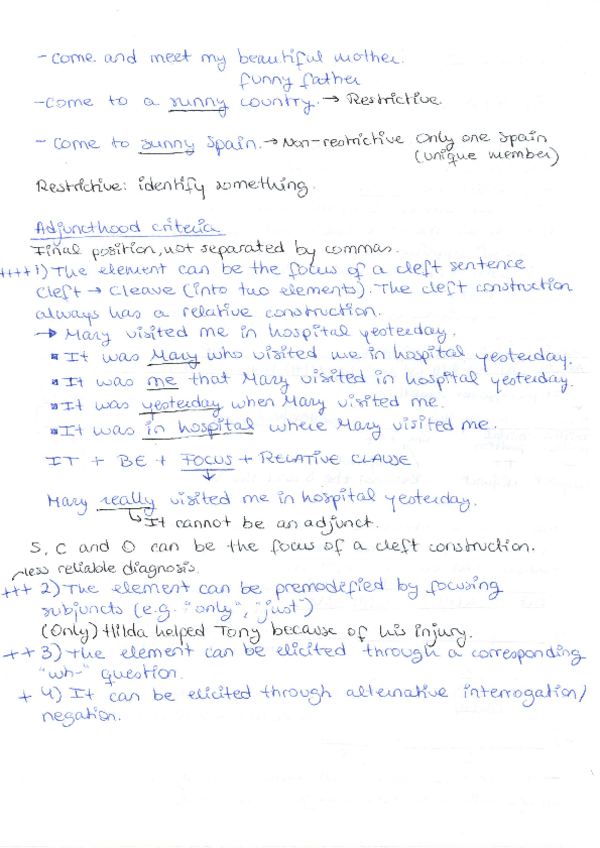 - Come and meet my beautiful mother.
funny father
- Come to a sunny country. → Restrictive.
- Come to sunny Spain. → Non-restrictive Only one Spain
(unique member)
Restrictive: identify something.
Adjuncthood criteria
Final position, not separated by commas.
++++ 1) The element can be the focus of a cleft sentence
Cleft → Cleave (into two elements). The cleft construction
always has a relative construction.
→ Mary visited me in hospital yesterday.
▪ It was Mary who visited me in hospital yesterday.
▪ It was me that Mary visited in hospital yesterday.
▪ It was yesterday when Mary visited me.
▪ It was in hospital where Mary visited me.
IT + BE + FOCUS + RELATIVE CLAUSE
Mary really visited me in hospital yesterday.
↳ It cannot be an adjunct.
S, C and O can be the focus of a cleft construction.
less reliable diagnosis.
+++ 2) The element can be premodified by focusing
subjuncts (e.g. "only", "just")
(Only) Hilda helped Tony because of his injury.
++ 3) The element can be elicited through a corresponding
"wh-" question.
+ 4) It can be elicited through alternative interrogation/
negation.